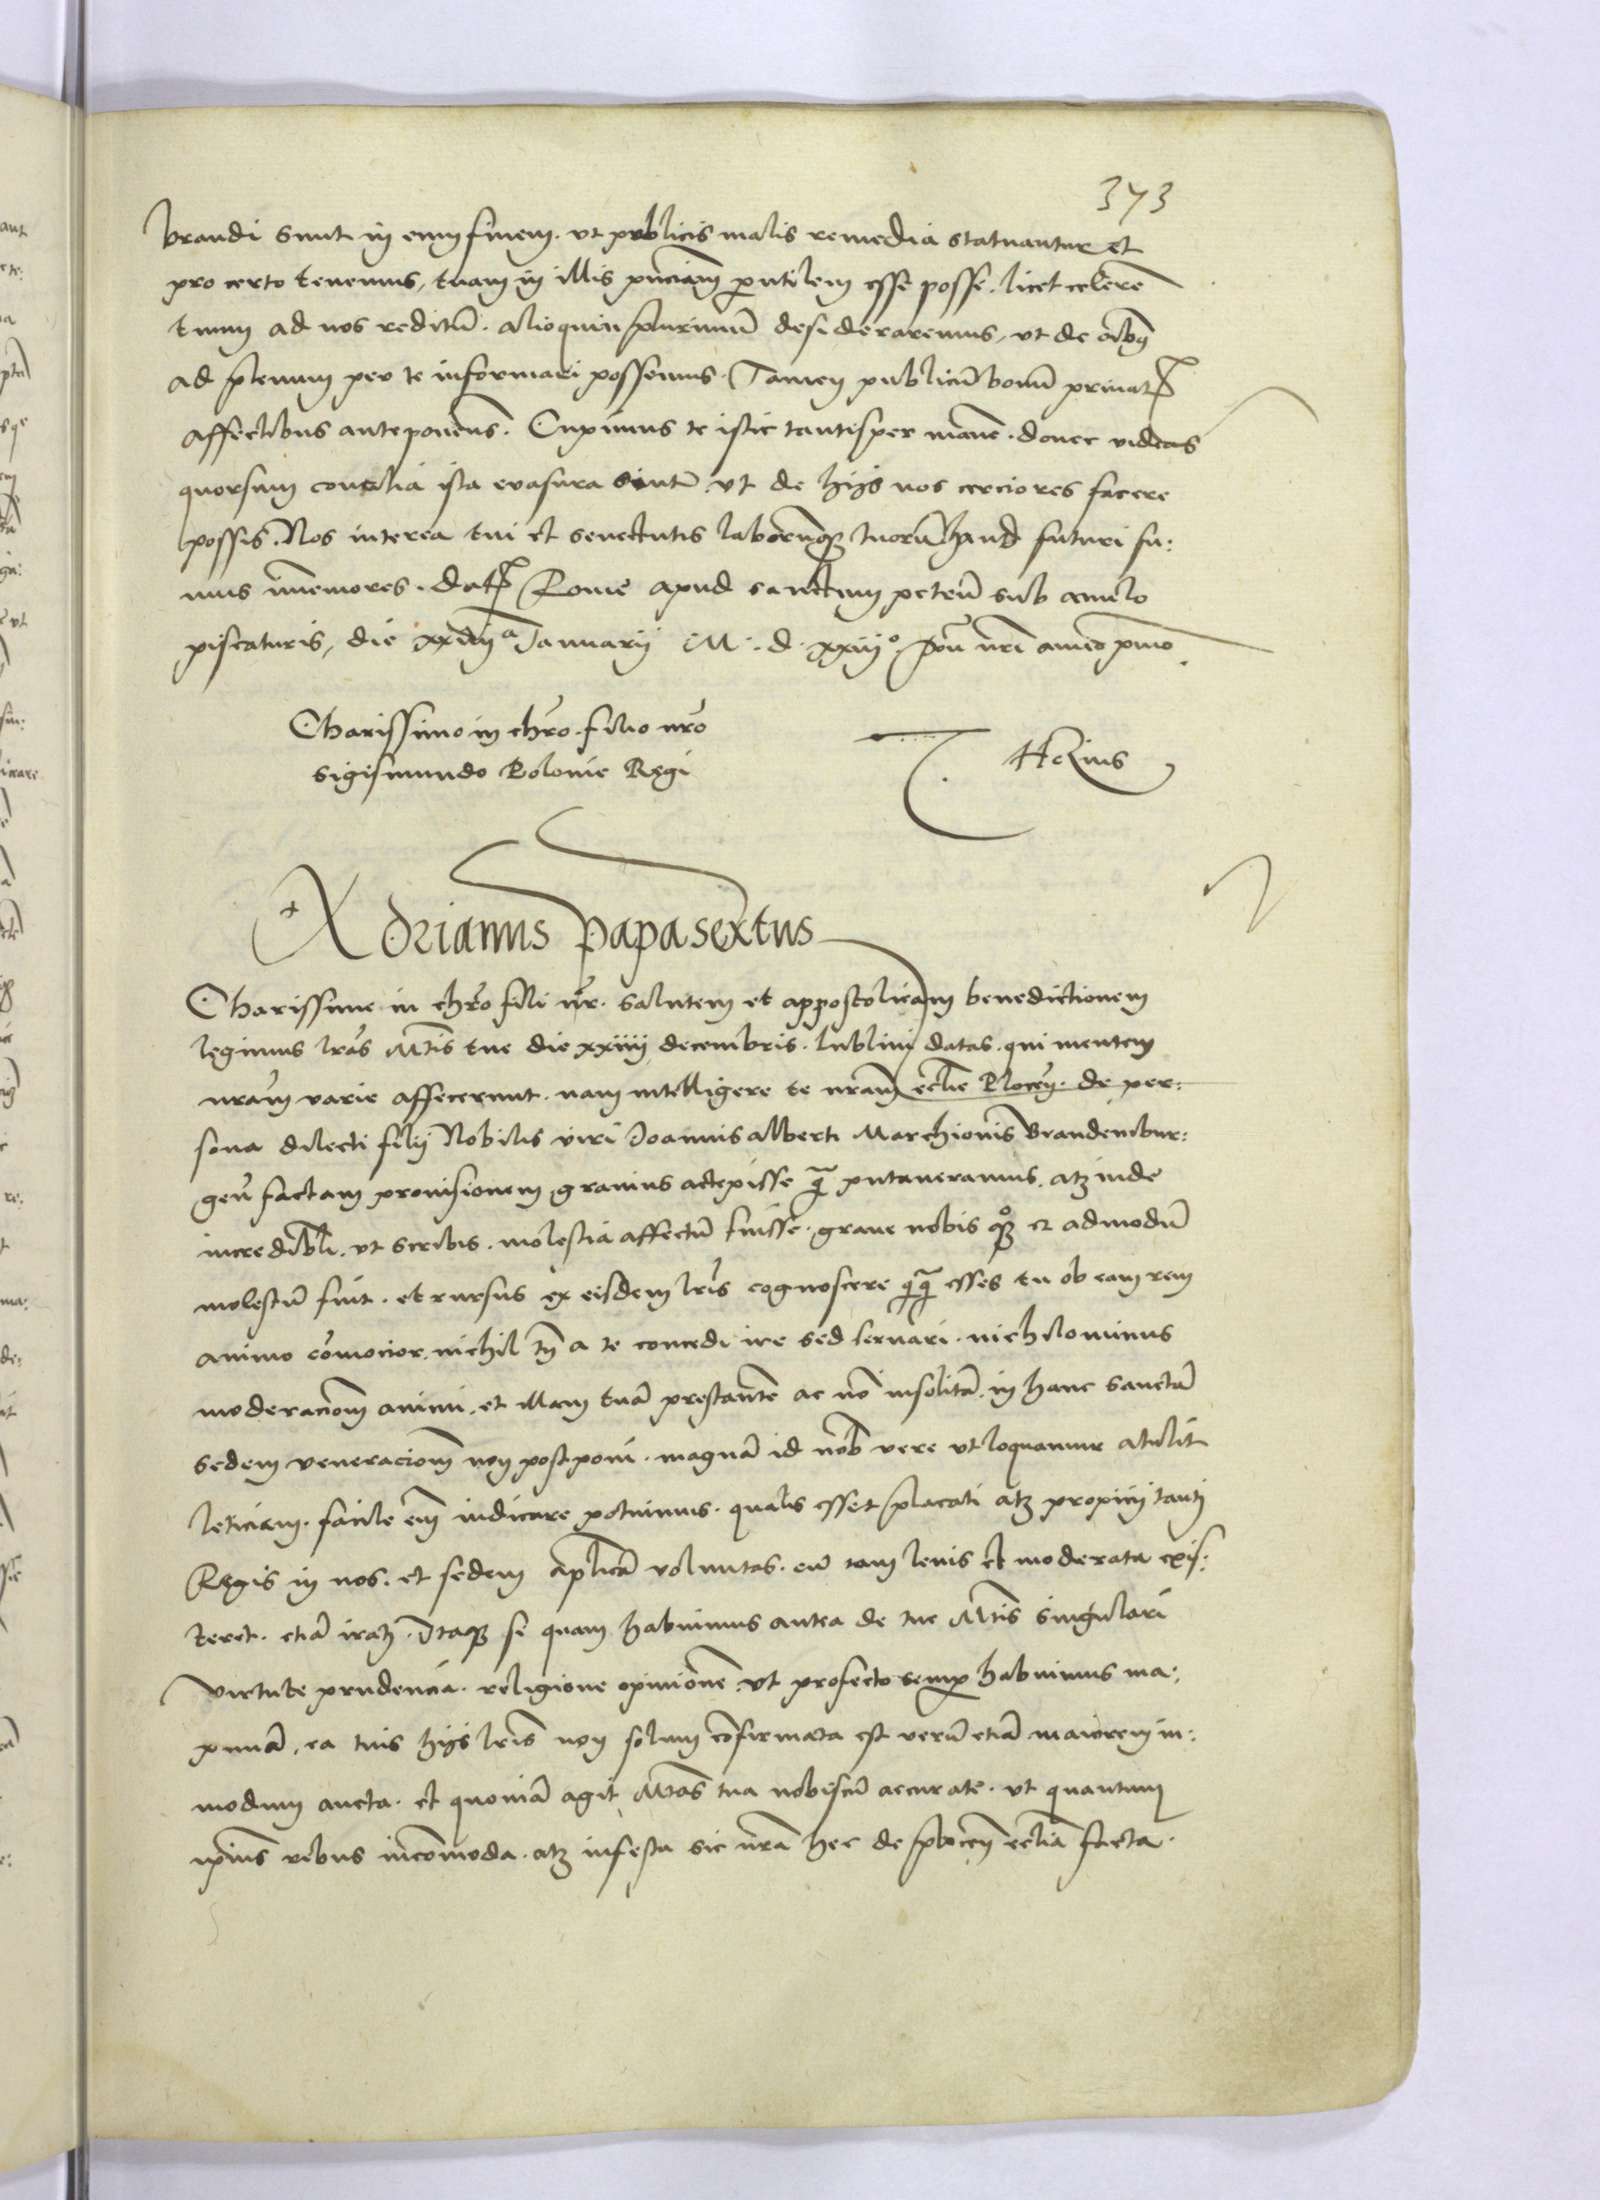 373
brandi sunt in eum finem. ut publicis malis remedia statuantur et
pro certo tenemus, tuam in illis pñciam putilem esse posse. licet celerē
tuum ad nos reditū. alioquin plurimū desideraremus, ut de oībꝫ
ad plenum per te informari possemus. Tamen publicū bonū privatꝭ
affectibus anteponens. Cupimus te istic tantisper manē. donec videas
quorsum consilia ista evasura sint ut de hijs nos cerciores facere
possis. Nos interea tui et senectutis laborūqꝫ tuorū haud futuri su:
mus immemores. datꝭ Rome apud sanctum petrū sub anulo
piscatoris, die Januarij M. d. xxiij° Pōn nrī anno pmo
Charissimo in chro. filio nr̃o
Sigismundo Polonie Regi
T. Hezius
Adrianus papa sextus
Charissime in chrō fili nr̃. salutem et appostolicam benedictionem
legimus lr̃as Mtis tue die xxiiij decembris. lublini datas. qui mentem
nr̃am varie affecerunt. nam intelligere te nr̃am ecclie Plocen̄. de per:
sona dilecti filij Nobilis viri Joannis alberti Marchionis Brandenbur:
gen̄ factam provisionem gravius accepisse q̄ putaveramus. atqꝫ inde
incredibli. ut scribis. molestia affectū fuisse. grave nobis qꝫ° et admodū
molestū fuit. et rursus ex eisdem lr̃is cognoscere q̄q̄ esses tu ob eam rem
animo cōmocior. nichil tn̄ a te concedi ire sed servari. nichilominus
moderaciom̄ animi. et illam tuā prestantē ac nō insolitā. in hanc sanctā
sedem veneraciom̄ non postponi. magnā id nob̄ vere ut loquamur atulit
leticiam. facile em̄ iudicare potuimus. qualis esset placati atqꝫ propicij tanti
Regis in nos. et sedem aplicā voluntas. cū tam lenis et moderata exis:
teret. etiā irati. Itaqꝫ si quam habuimus antea de tue Mtis singulari
virtute prudencia. religione opinionē. ut profecto semp habuimus ma:
ximā, ea tuis hijs lr̃is non solum cōfirmata est verū etiā maiorem in:
modum aucta. et quoniā agit Mtas tua nobiscū accurate. ut quantum
ipsius rebus incōmoda. atqꝫ infesta sic nr̃a hec de plocen̄ ecclia facta.